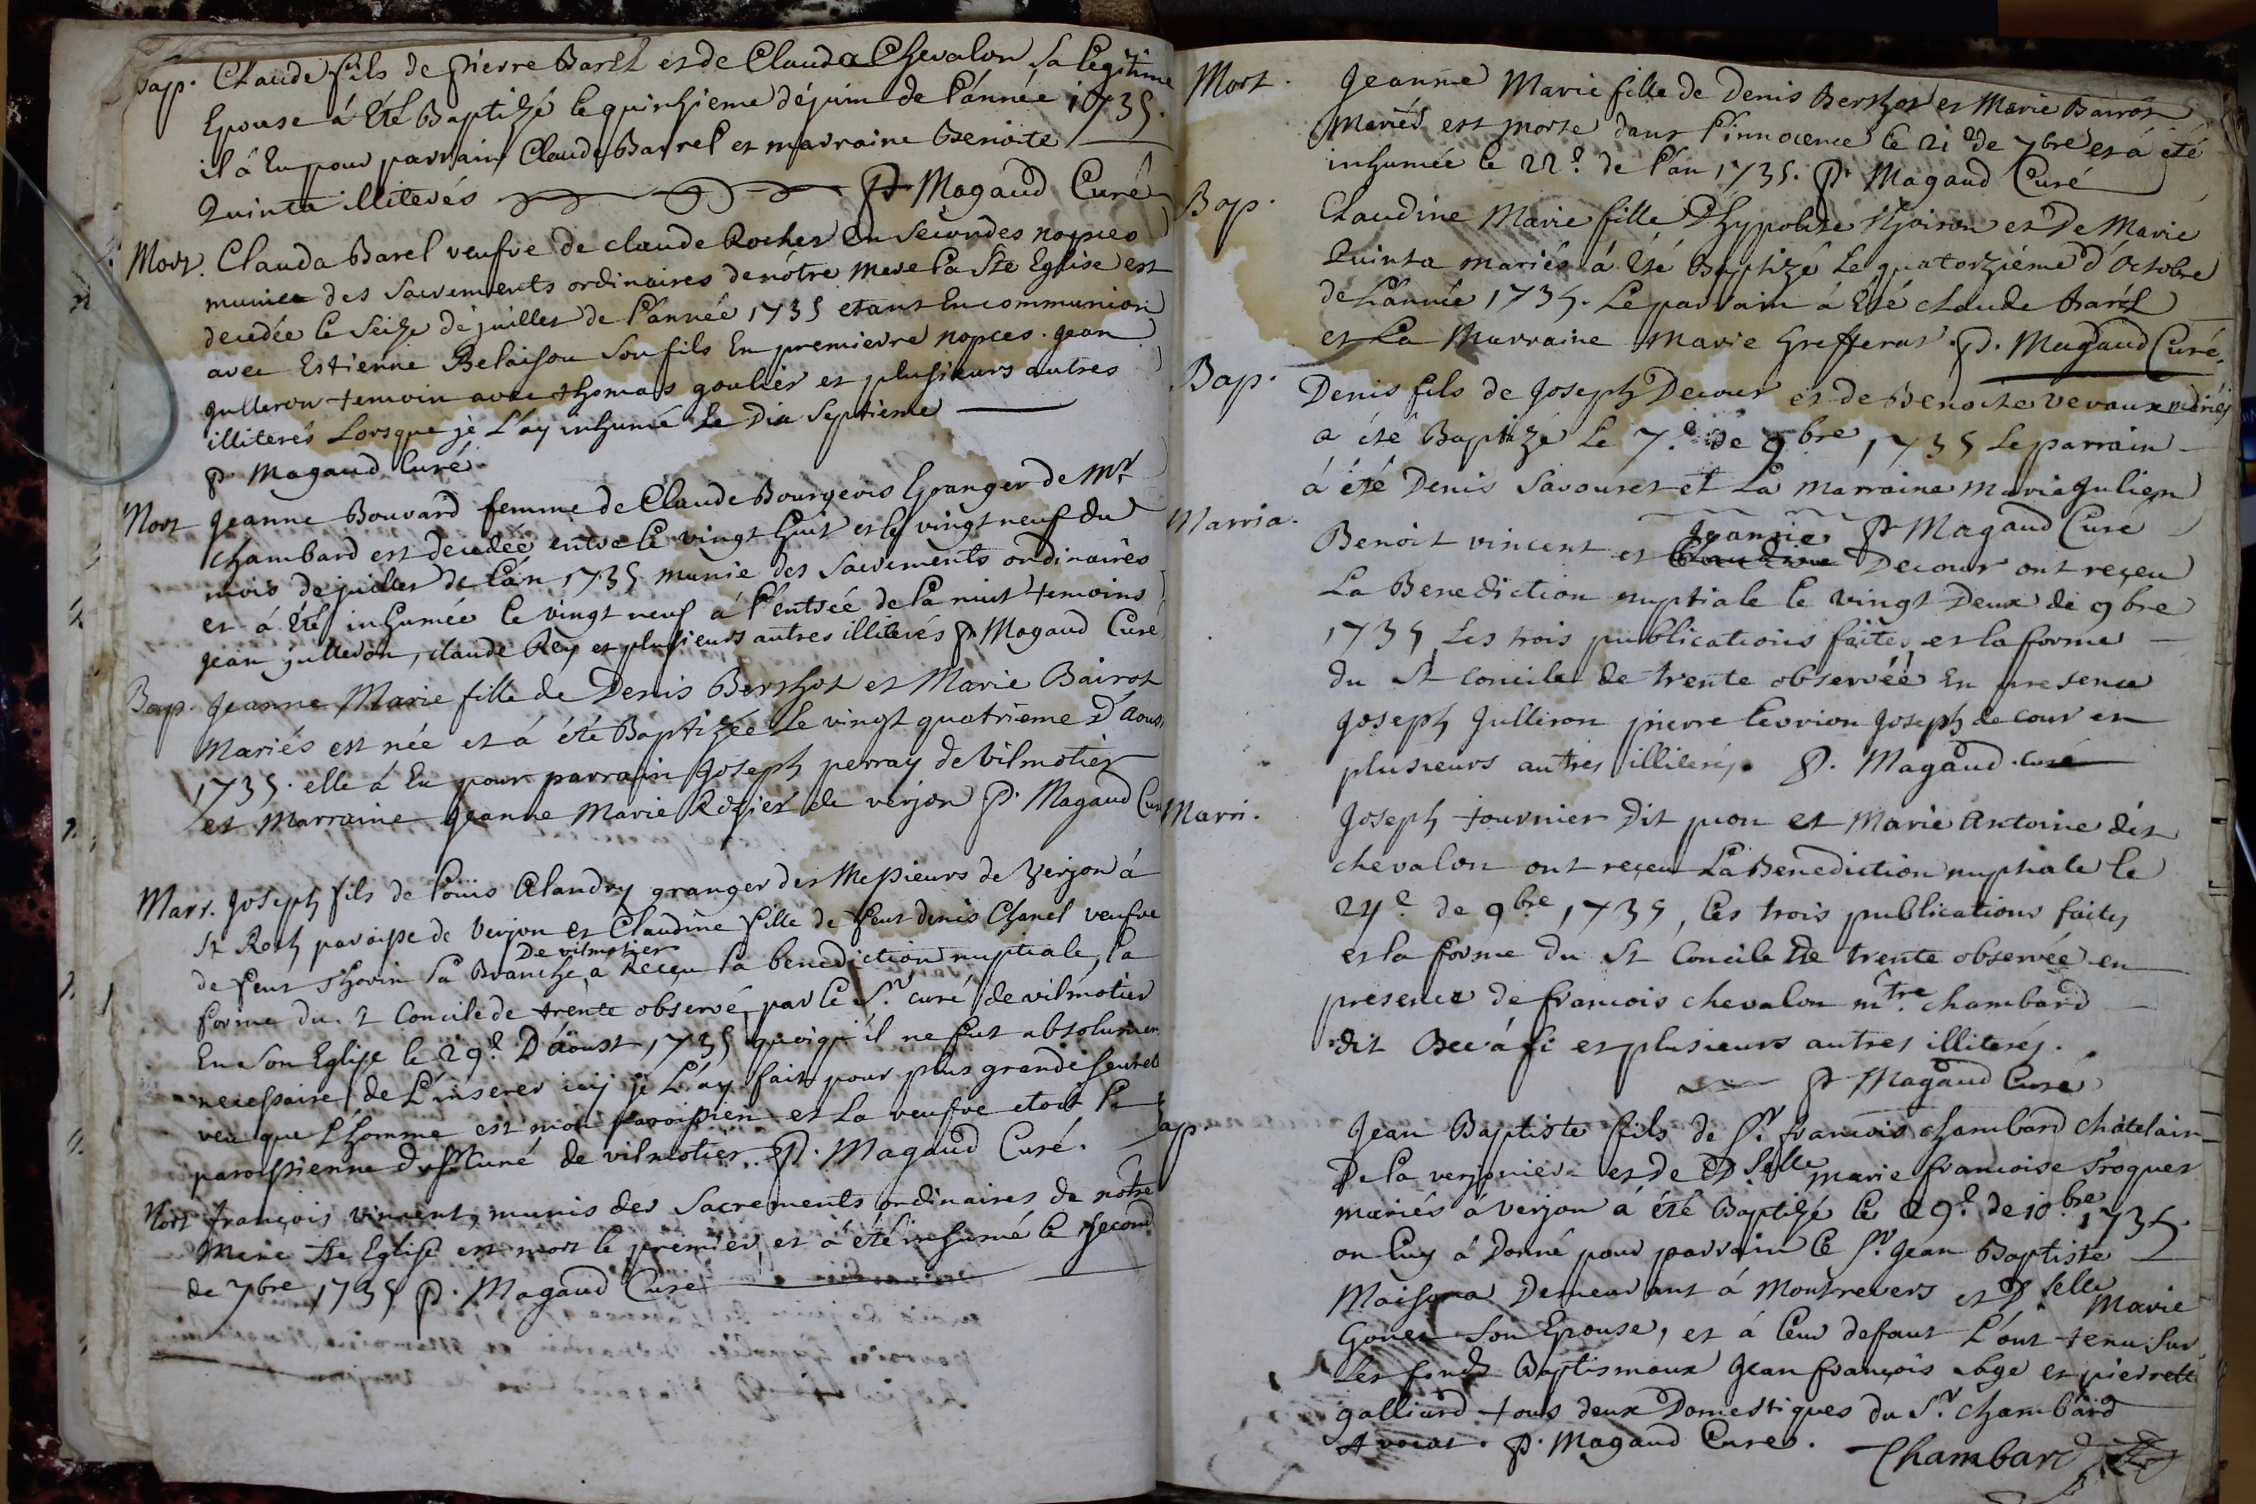 Bap. Claude fils de pierre Barel et de Clauda Chevalon sa Legitime
Epouse à été Baptizé le quinzieme déjuin de l'année 1735.
il á Eu pour parrain Claude Barrel et marraine Benoite
Quinta illiterés P. Magaud Curé
Mort. Clauda Barel veufve de claude Rocher En secondes nopces
munier des sacrements ordinaires de nôtre mere la Ste Eglise est
decedée le seize de juillet de l'année 1735 etant En communion
avec Estienne Belaison son fils En premierre nopces. jean
gulleron temoin avec thomas goulier et plusieurs autres
illiterés Lorsque je L'ay inhumé Le Dix septieme
P. Magaud Curé.
Mort Jeanne Bouvard femme de Claude Bourgeois Granger de Mr
chambard est decedée entre le vingt huit et le vingt neuf du
mois de juillet de l'án 1735 munie des sacrements ordinaires
et á été inhumée le vingt neuf á l'entrée de la nuit temoins
jean gulleron, claude Rey et plusieurs autres illiterés P. Magaud Curé
Bap. Jeanne Marie fille de Denis Berthot et Marie Bairot
Mariés est née et á été Baptizée Le vingt quatrieme D'aoust
1735. elle á Eu pour parrain Joseph perray de vilmotier
et Marraine Jeanne Marie Rozier de verjon P. Magaud Cur
Marr. Joseph fils de Loüis Alandry granger des Messieurs de Verjon á
St Roch paroisse de Verjon et Claudine fille de feut denis Chanel veufve
de feut thovin La Branche De vilmotier a Reçeu la benediction nuptiale, la
forme du St Concile de trente observé, par le Sr curé de vilmotier
En son Eglise le 29e D'áoust 1735 quoiqu'il ne fut absolumen
necessaire de L'inserer icy je L'ay fait pour plus grande seureté
veu que L'homme est mon paroissien et La veufve etoit la
paroissienne du Sr Curé de vilmotier. P. Magaud Curé.
Mort françois vincent, munis des Sacrements ordinaires de nôtre
Mere Ste Eglise est mort le premier, et á été inhumé le second
de 7bre 1735 P. Magaud Curé
Mort. Jeanne Marie fille de Denis Berthot et Marie Bairot
Mariés est morte dans l'innocence le 21e de 7bre et á été
inhumée le 22e de l'án 1735. P. Magaud Curé
Bap. Claudine Marie fille D'hypolite Thoiron et De Marie
Quinta mariés á été Baptizé Le quatorziéme d'Octobre
de L'année 1735. Le parrain á Eté claude Barel
et La Marraine Marie Grefferat. P. Magaud Curé.
Bap. Denis fils de Joseph Decour et de Benoite Vevaux mariés
a été Baptizé Le 7e de 9bre 1735 Le parrain
á été Denis Savouret et La marraine marie Julien
P. Magaud Curé
Marria. Benoit vincent et Claudine Jeanne Decour ont reçeu
La Benediction nuptiale le vingt Deux de 9bre
1735 Les trois publications faites, et la forme
du St concile de trente observéé En presence
Joseph Julliron pierre Levrion Joseph de cour et
plusieurs autres illiterés. P. Magaud curé
Marri. Joseph tournier Dit pion et Marie Antoine dit
chevalon ont reçeu La Benediction nuptiale le
24e de 9bre 1735, les trois publications faites
et la forme du St Concile De trente observée en
presence de francois chevalon mtre chambard
dit et plusieurs autres illiterés.
P. Magaud Curé
Bap. Jean Baptiste fils de Sr francois chambard châtelain
De la verjonière et de Dselle Marie francoise Froquet
mariés á verjon á été Baptizé le 29e de 10bre 1735.
on luy á Donné pour parrain le Sr Jean Baptiste
Maisona Demeurant á Montrevers et Dselle Marie
Gonet Son Epouse, et á leur defaut L'ont tenu sur
Les fonds Baptismaux Jean françois abge et pierrette
galliard tous deux Domestiques du Sr Chambard
Avocat. P. Magaud Curé.
Chambard